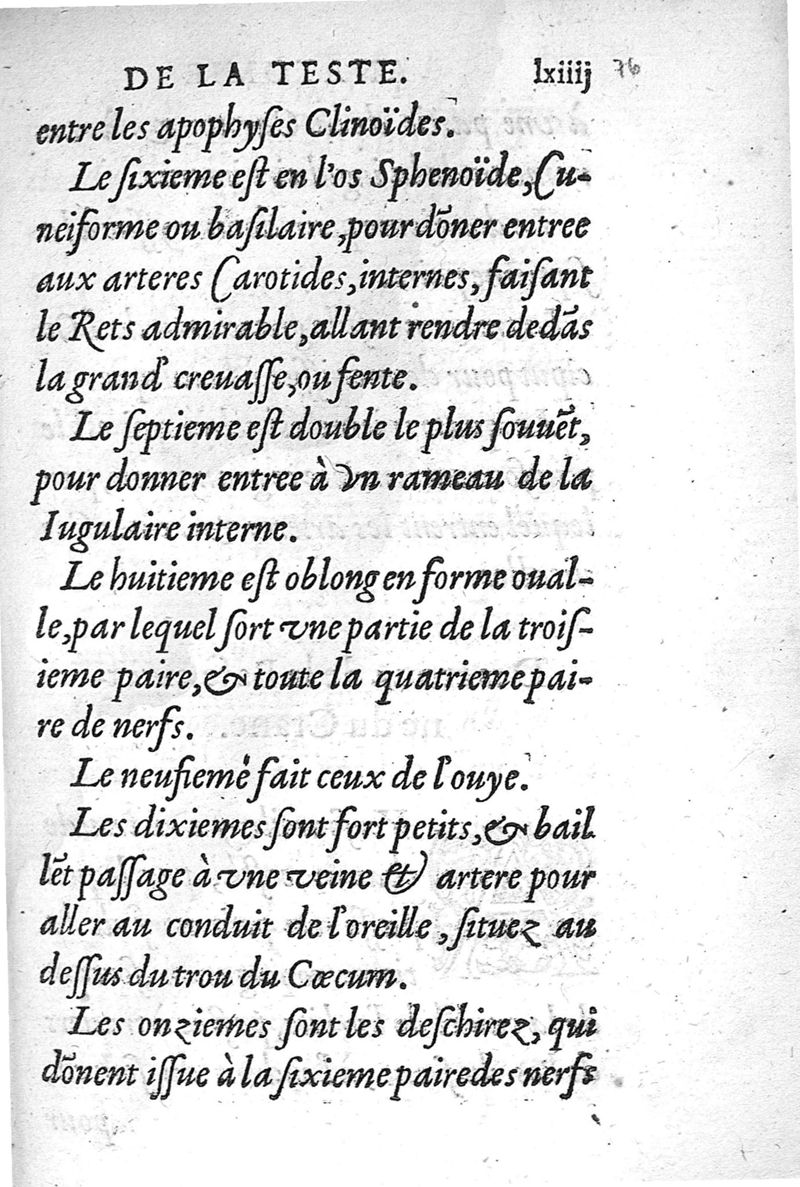 DE LA TESTE. lxiiij 76
entre les apophyſes Clinoïdes.
Le ſixieme eſt en l'os Sphenoïde, Cu-
neiforme ou baſilaire, pour dōner entree
aux arteres Carotides, internes, faiſant
le Rets admirable, allant rendre dedās
la grand' creuaſſe, ou fente.
Le ſeptieme eſt double le plus ſouuēt,
pour donner entree à vn rameau de la
Iugulaire interne.
Le huitieme eſt oblong en forme oual-
le, par lequel ſort vne partie de la troiſ-
ieme paire, & toute la quatrieme pai-
re de nerfs.
Le neufieme fait ceux de l'ouye.
Les dixiemes ſont fort petits, & bail
lēt paſſage à vne veine & artere pour
aller au conduit de l'oreille, ſituez au
deſſus du trou du Cœcum.
Les onziemes ſont les deſchirez, qui
dōnent iſſue à la ſixieme paire des nerfs